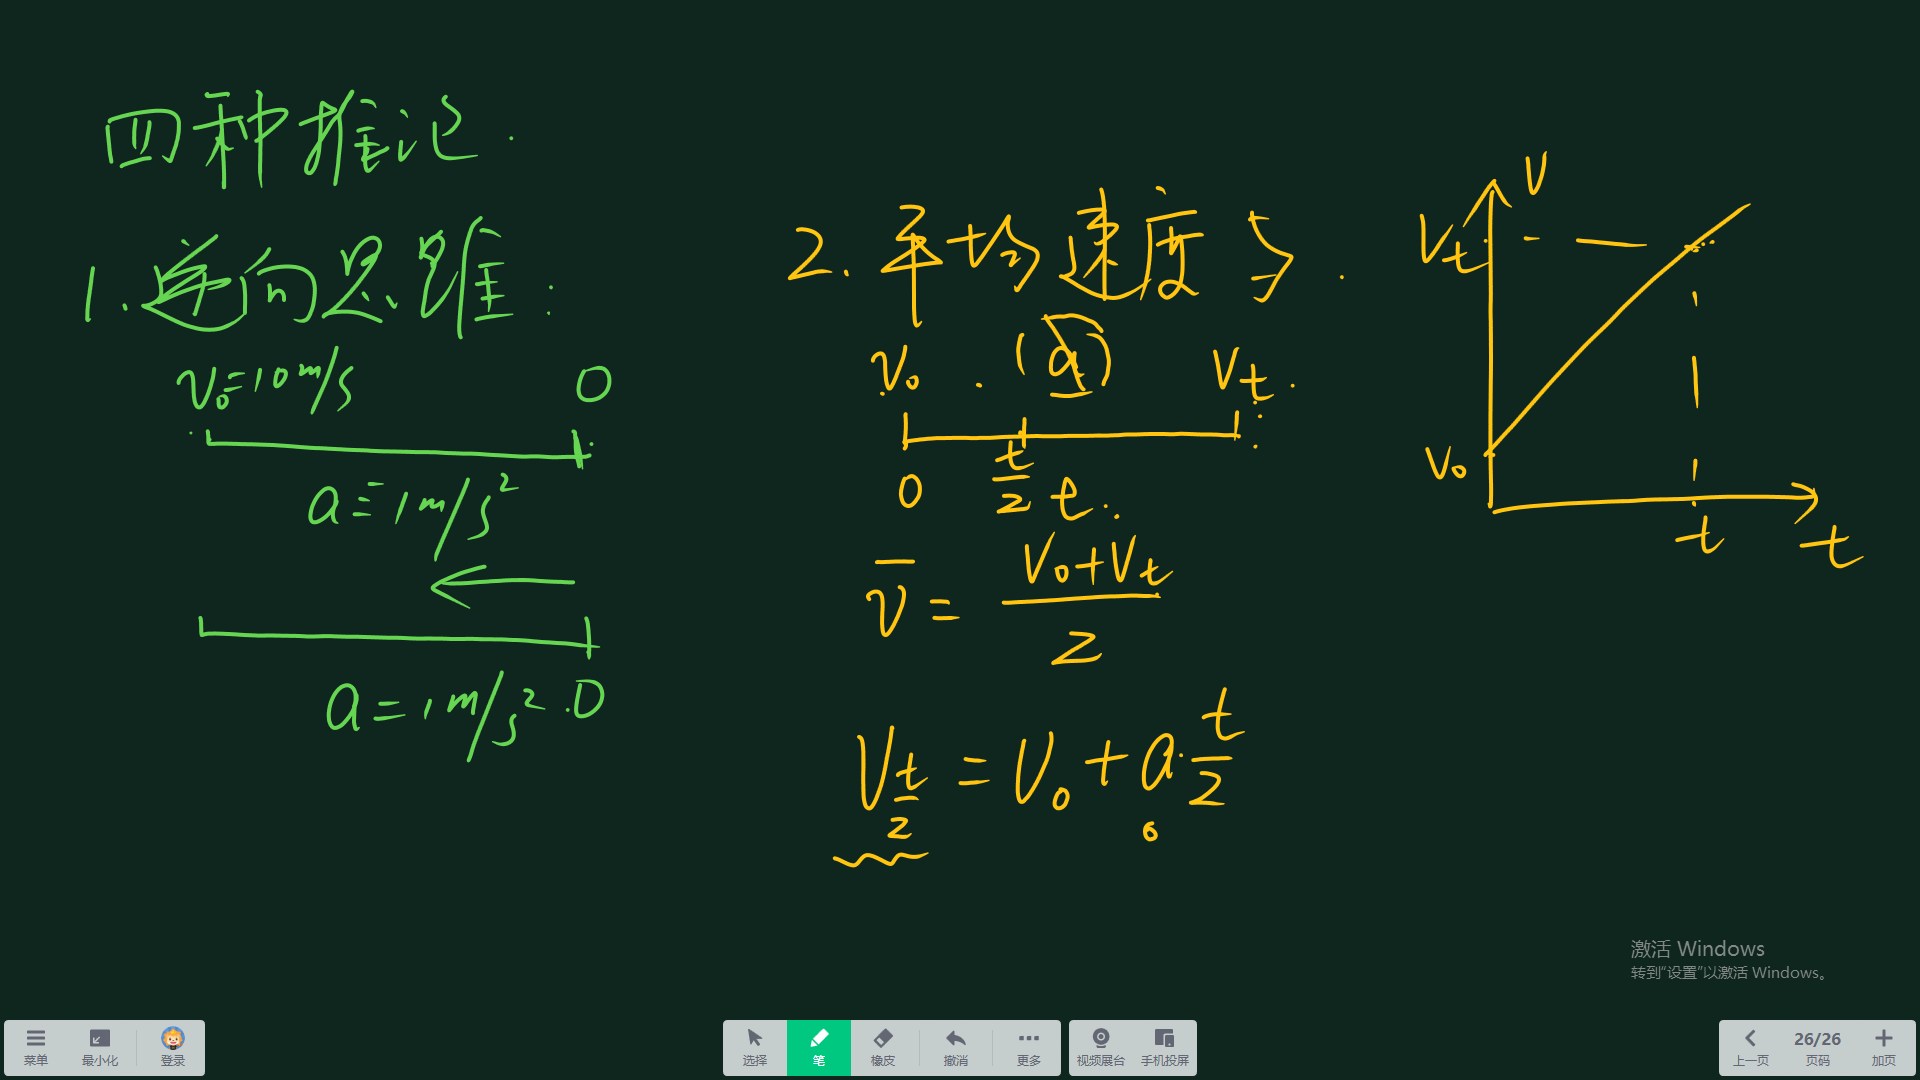 四种推论.
1.逆向思维:
v₀=10m/s 0
a=1m/s²
a=1m/s² 0
2.平均速度
v₀ (a) Vt
0 t/2 t
v̄ = (V₀+Vt)/2
V t/2 = V₀ + a·t/2
V
Vt
V₀
t
t
激活 Windows
转到“设置”以激活 Windows。
菜单 最小化 登录
选择 笔 橡皮 撤消 更多
视频展台 手机投屏
上一页 26/26 页码 加页